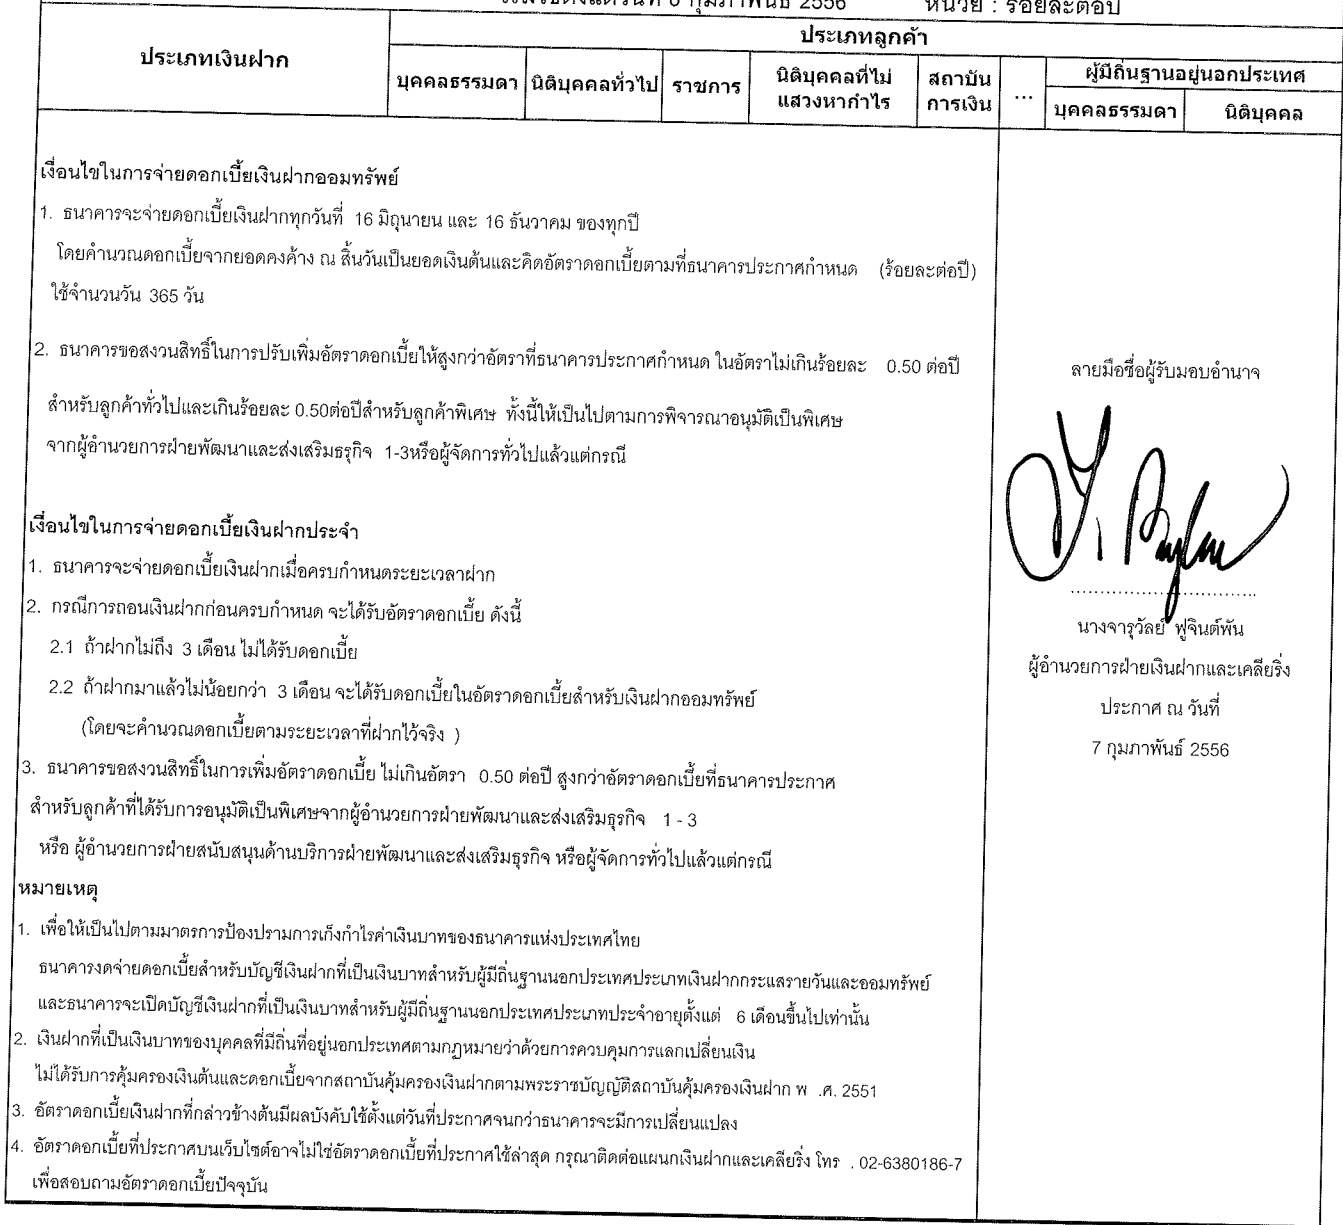 กุมภาพันธ์ 2556 หน่วย : ร้อยละต่อปี
ประเภทเงินฝาก
ประเภทลูกค้า
บุคคลธรรมดา นิติบุคคลทั่วไป ราชการ นิติบุคคลที่ไม่แสวงหากำไร สถาบันการเงิน ... ผู้มีถิ่นฐานอยู่นอกประเทศ
บุคคลธรรมดา นิติบุคคล
เงื่อนไขในการจ่ายดอกเบี้ยเงินฝากออมทรัพย์
1. ธนาคารจะจ่ายดอกเบี้ยเงินฝากทุกวันที่ 16 มิถุนายน และ 16 ธันวาคม ของทุกปี
โดยคำนวณดอกเบี้ยจากยอดคงค้าง ณ สิ้นวันเป็นยอดเงินต้นและคิดอัตราดอกเบี้ยตามที่ธนาคารประกาศกำหนด (ร้อยละต่อปี)
ใช้จำนวนวัน 365 วัน
2. ธนาคารขอสงวนสิทธิ์ในการปรับเพิ่มอัตราดอกเบี้ยให้สูงกว่าอัตราที่ธนาคารประกาศกำหนด ในอัตราไม่เกินร้อยละ 0.50 ต่อปี
สำหรับลูกค้าทั่วไปและเกินร้อยละ 0.50ต่อปีสำหรับลูกค้าพิเศษ ทั้งนี้ให้เป็นไปตามการพิจารณาอนุมัติเป็นพิเศษ
จากผู้อำนวยการฝ่ายพัฒนาและส่งเสริมธรุกิจ 1-3หรือผู้จัดการทั่วไปแล้วแต่กรณี
เงื่อนไขในการจ่ายดอกเบี้ยเงินฝากประจำ
1. ธนาคารจะจ่ายดอกเบี้ยเงินฝากเมื่อครบกำหนดระยะเวลาฝาก
2. กรณีการถอนเงินฝากก่อนครบกำหนด จะได้รับอัตราดอกเบี้ย ดังนี้
2.1 ถ้าฝากไม่ถึง 3 เดือน ไม่ได้รับดอกเบี้ย
2.2 ถ้าฝากมาแล้วไม่น้อยกว่า 3 เดือน จะได้รับดอกเบี้ยในอัตราดอกเบี้ยสำหรับเงินฝากออมทรัพย์
(โดยจะคำนวณดอกเบี้ยตามระยะเวลาที่ฝากไว้จริง )
3. ธนาคารขอสงวนสิทธิ์ในการเพิ่มอัตราดอกเบี้ย ไม่เกินอัตรา 0.50 ต่อปี สูงกว่าอัตราดอกเบี้ยที่ธนาคารประกาศ
สำหรับลูกค้าที่ได้รับการอนุมัติเป็นพิเศษจากผู้อำนวยการฝ่ายพัฒนาและส่งเสริมธุรกิจ 1 - 3
หรือ ผู้อำนวยการฝ่ายสนับสนุนด้านบริการฝ่ายพัฒนาและส่งเสริมธุรกิจ หรือผู้จัดการทั่วไปแล้วแต่กรณี
หมายเหตุ
1. เพื่อให้เป็นไปตามมาตรการป้องปรามการเก็งกำไรค่าเงินบาทของธนาคารแห่งประเทศไทย
ธนาคารงดจ่ายดอกเบี้ยสำหรับบัญชีเงินฝากที่เป็นเงินบาทสำหรับผู้มีถิ่นฐานนอกประเทศประเภทเงินฝากกระแสรายวันและออมทรัพย์
และธนาคารจะเปิดบัญชีเงินฝากที่เป็นเงินบาทสำหรับผู้มีถิ่นฐานนอกประเทศประเภทประจำอายุตั้งแต่ 6 เดือนขึ้นไปเท่านั้น
2. เงินฝากที่เป็นเงินบาทของบุคคลที่มีถิ่นที่อยู่นอกประเทศตามกฎหมายว่าด้วยการควบคุมการแลกเปลี่ยนเงิน
ไม่ได้รับการคุ้มครองเงินต้นและดอกเบี้ยจากสถาบันคุ้มครองเงินฝากตามพระราชบัญญัติสถาบันคุ้มครองเงินฝาก พ .ศ. 2551
3. อัตราดอกเบี้ยเงินฝากที่กล่าวข้างต้นมีผลบังคับใช้ตั้งแต่วันที่ประกาศจนกว่าธนาคารจะมีการเปลี่ยนแปลง
4. อัตราดอกเบี้ยที่ประกาศบนเว็บไซต์อาจไม่ใช่อัตราดอกเบี้ยที่ประกาศใช้ล่าสุด กรุณาติดต่อแผนกเงินฝากและเคลียริ่ง โทร . 02-6380186-7
เพื่อสอบถามอัตราดอกเบี้ยปัจจุบัน
ลายมือชื่อผู้รับมอบอำนาจ
นางจารุวัลย์ ฟูจินต์พัน
ผู้อำนวยการฝ่ายเงินฝากและเคลียริ่ง
ประกาศ ณ วันที่
7 กุมภาพันธ์ 2556